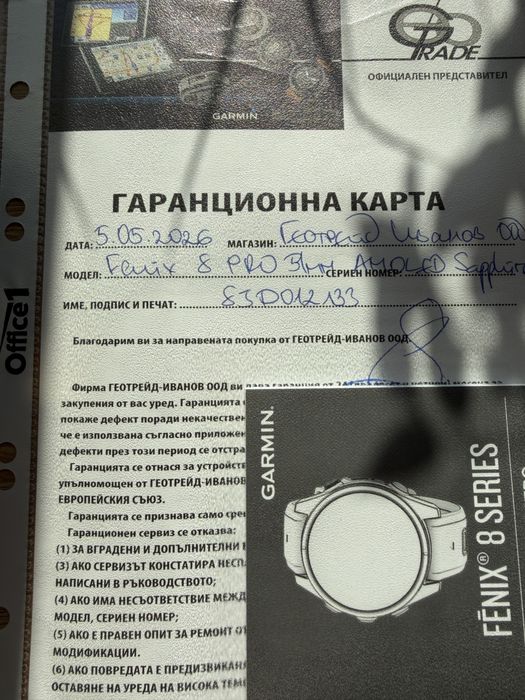 GEO
TRADE
ОФИЦИАЛЕН ПРЕДСТАВИТЕЛ
GARMIN
ГАРАНЦИОННА КАРТА
ДАТА: 5.05.2026 МАГАЗИН: Геотрейд Иванов ОД
МОДЕЛ: Fenix 8 PRO 51mm AMOLED Sapphire
СЕРИЕН НОМЕР:
ИМЕ, ПОДПИС И ПЕЧАТ: 83D012133
Благодарим ви за направената покупка от ГЕОТРЕЙД-ИВАНОВ ООД.
Фирма ГЕОТРЕЙД-ИВАНОВ ООД ви дава гаранция от
закупения от вас уред. Гаранцията
покаже дефект поради некачествен
че е използвана съгласно приложен
дефекти през този период се отстра
Гаранцията се отнася за устройств
упълномощен от ГЕОТРЕЙД-ИВАНОВ
ЕВРОПЕЙСКИЯ СЪЮЗ.
Гаранцията се признава само сре
Гаранционен сервиз се отказва:
(1) ЗА ВГРАДЕНИ И ДОПЪЛНИТЕЛНИ
(3) АКО СЕРВИЗЪТ КОНСТАТИРА НЕСП
НАПИСАНИ В РЪКОВОДСТВОТО;
(4) АКО ИМА НЕСЪОТВЕТСТВИЕ МЕЖД
МОДЕЛ, СЕРИЕН НОМЕР;
(5) АКО Е ПРАВЕН ОПИТ ЗА РЕМОНТ ОТ
МОДИФИКАЦИИ.
(6) АКО ПОВРЕДАТА Е ПРЕДИЗВИКАН
ОСТАВЯНЕ НА УРЕДА НА ВИСОКА ТЕМ
Office1
GARMIN.
FĒNIX® 8 SERIES